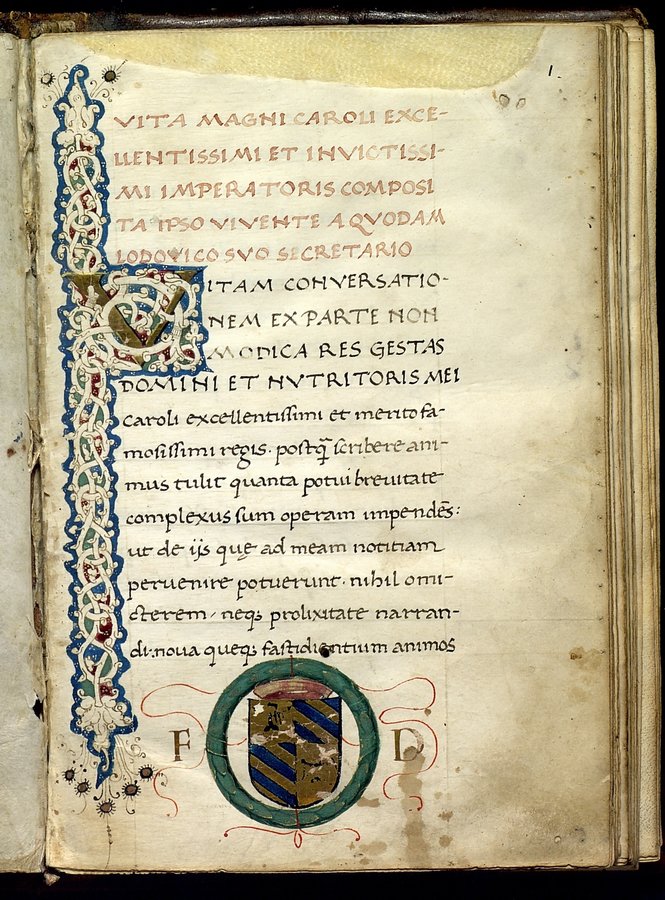 1.
VITA MAGNI CAROLI EXCE-
LLENTISSIMI ET INVICTISSI-
MI IMPERATORIS COMPOSI
TA IPSO VIVENTE A QVODAM
LODOVICO SVO SECRETARIO
VITAM CONVERSATIO-
NEM EX PARTE NON
MODICA RES GESTAS
DOMINI ET NVTRITORIS MEI
Caroli excellentissimi et merito fa-
mosissimi regis. postq̃ scribere ani-
mus tulit quanta potui breuitate
complexus sum operam impendẽs:
ut de ijs quę ad meam notitiam
peruenire potuerunt. nihil omi-
cterem, neq; prolixitate narran-
di. noua queq; fastidientium animos
F D